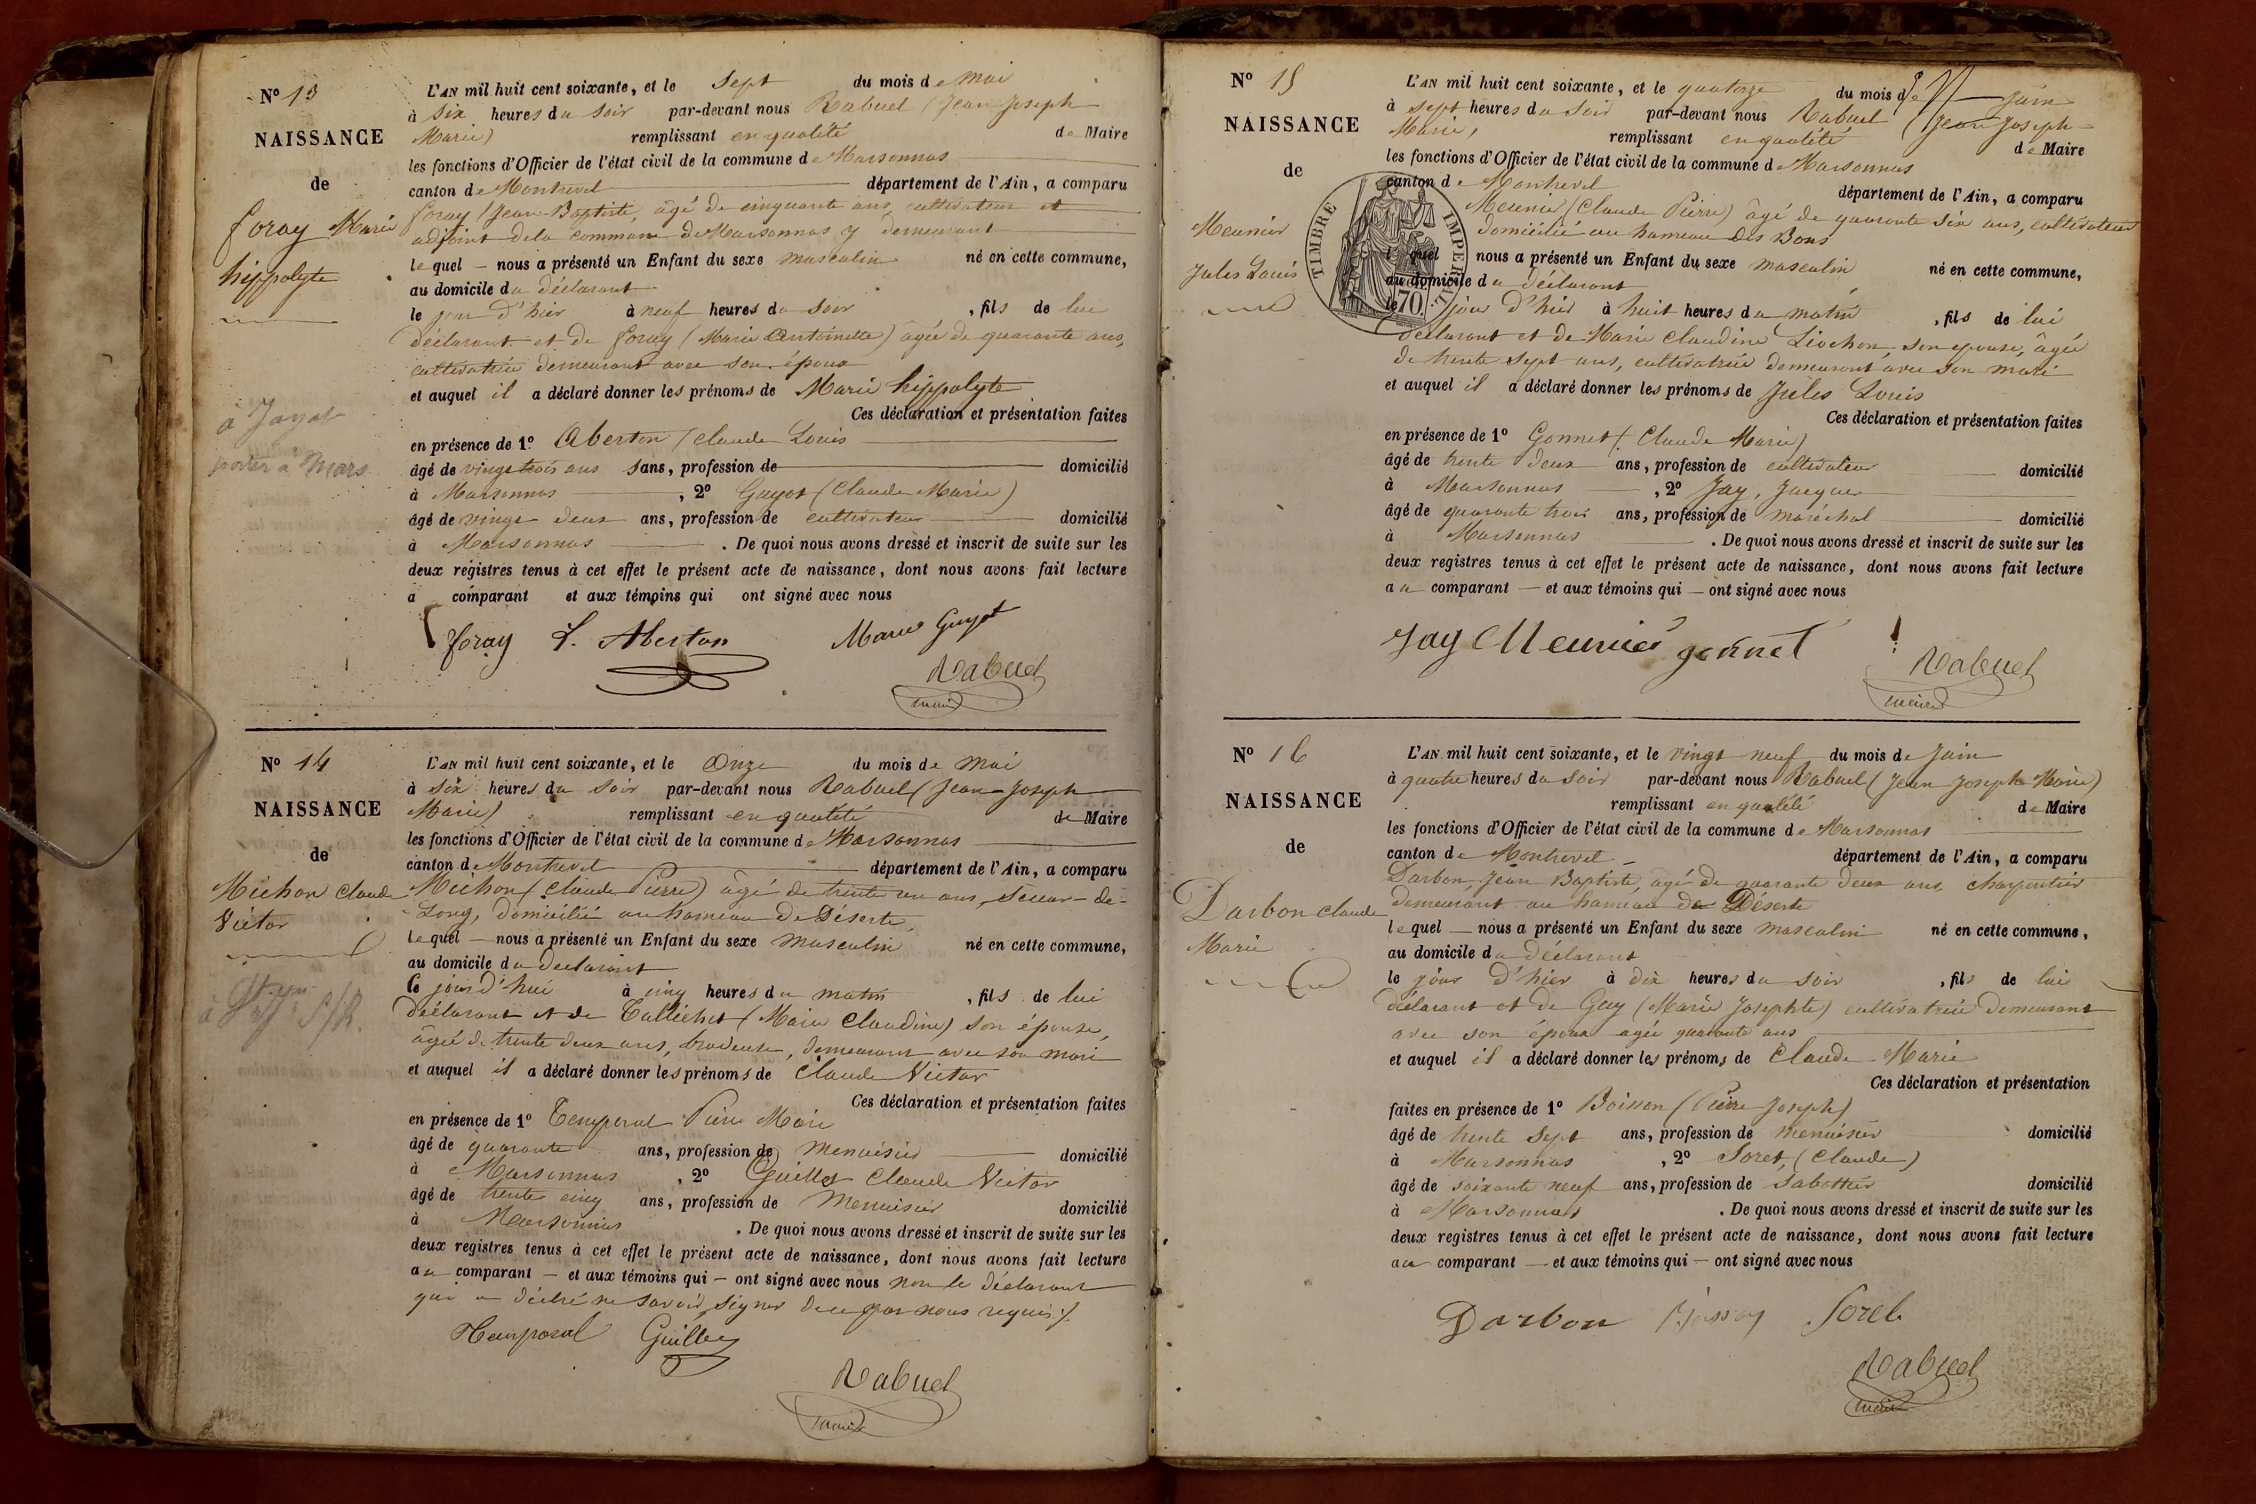 N° 13
NAISSANCE
de
foray Marie
hippolyte
à Jayat
L'AN mil huit cent soixante, et le Sept du mois de Mai
à Six heures du Soir par-devant nous Rabuel (Jean Joseph
Marie) remplissant en qualité de Maire
les fonctions d'Officier de l'état civil de la commune de Marsonnas
canton de Montrevel département de l'Ain, a comparu
foray (Jean-Baptiste, âgé de cinquante ans, cultivateur et
adjoint de la commune de Marsonnas y demeurant
lequel nous a présenté un Enfant du sexe masculin né en cette commune,
au domicile du déclarant
le jour d'hier à neuf heures du Soir , fils de lui
déclarant et de foray (Marie Antoinette) âgée de quarante ans,
cultivatrice demeurant avec son époux
et auquel il a déclaré donner les prénoms de Marie hippolyte
Ces déclaration et présentation faites
en présence de 1° Aberton (Claude Louis
âgé de vingt trois ans sans, profession de domicilié
à Marsonnas , 2° Guyot (Claude Marie)
âgé de vingt deux ans, profession de cultivateur domicilié
à Marsonnas . De quoi nous avons dressé et inscrit de suite sur les
deux registres tenus à cet effet le présent acte de naissance, dont nous avons fait lecture
a comparant et aux témoins qui ont signé avec nous
foray L. Aberton Marie Guyot
Rabuel
maire
N° 14
NAISSANCE
de
Michon Claude
Victor
L'AN mil huit cent soixante, et le Onze du mois de Mai
à Six heures du Soir par-devant nous Rabuel (Jean-Joseph
Marie) remplissant en qualité de Maire
les fonctions d'Officier de l'état civil de la commune de Marsonnas
canton de Montrevel département de l'Ain, a comparu
Michon (Claude Pierre) âgé de trente un ans, Scieur-de-
Long, domicilié au hameau de Déserte,
lequel nous a présenté un Enfant du sexe masculin né en cette commune,
au domicile du déclarant
le jourd'hui à cinq heures du matin , fils de lui
déclarant et de (Marie Claudine) son épouse,
âgée de trente deux ans, brodeuse, demeurant avec son mari
et auquel il a déclaré donner les prénoms de Claude Victor
Ces déclaration et présentation faites
en présence de 1° Temporal Pierre Marie
âgé de quarante ans, profession de Menuisier domicilié
à Marsonnas , 2° Guillet Claude Victor
âgé de trente cinq ans, profession de Menuisier domicilié
à Marsonnas . De quoi nous avons dressé et inscrit de suite sur les
deux registres tenus à cet effet le présent acte de naissance, dont nous avons fait lecture
au comparant et aux témoins qui ont signé avec nous non le déclarant
qui a déclaré ne savoir signer de ce par nous requis
Temporal Guillet
Rabuel
maire
N° 15
NAISSANCE
de
Meunier
Jules Louis
TIMBRE IMPERIAL
70
L'AN mil huit cent soixante, et le quatorze du mois de Juin
à sept heures du Soir par-devant nous Rabuel (Jean Joseph
Marie, remplissant en qualité de Maire
les fonctions d'Officier de l'état civil de la commune de Marsonnas
canton de Montrevel département de l'Ain, a comparu
Meunier (Claude Pierre) âgé de quarante Six ans, cultivateur
domicilié au hameau des Bons
lequel nous a présenté un Enfant du sexe masculin né en cette commune,
au domicile du déclarant
le jour d'hier à huit heures du matin , fils de lui
déclarant et de Marie Claudine Liochon, son épouse, âgée
de trente Sept ans, cultivatrice demeurant avec son mari
et auquel il a déclaré donner les prénoms de Jules Louis
Ces déclaration et présentation faites
en présence de 1° Gonnet (Claude Marie)
âgé de trente deux ans, profession de cultivateur domicilié
à Marsonnas , 2° Jay, Jacques
âgé de quarante trois ans, profession de maréchal domicilié
à Marsonnas . De quoi nous avons dressé et inscrit de suite sur les
deux registres tenus à cet effet le présent acte de naissance, dont nous avons fait lecture
au comparant et aux témoins qui ont signé avec nous
Jay Meunier gonnet
Rabuel
maire
N° 16
NAISSANCE
de
Darbon Claude
Marie
L'AN mil huit cent soixante, et le vingt neuf du mois de Juin
à quatre heures du Soir par-devant nous Rabuel (Jean Joseph Marie)
remplissant en qualité de Maire
les fonctions d'Officier de l'état civil de la commune de Marsonnas
canton de Montrevel département de l'Ain, a comparu
Darbon, Jean Baptiste, âgé de quarante deux ans charpentier
demeurant au hameau de Déserte
lequel nous a présenté un Enfant du sexe masculin né en cette commune,
au domicile du déclarant
le jour d'hier à dix heures du soir , fils de lui
déclarant et de Guy (Marie Josephte) cultivatrice demeurant
avec son époux agée quarante ans
et auquel il a déclaré donner les prénoms de Claude Marie
Ces déclaration et présentation
faites en présence de 1° Boisson (Pierre Joseph)
âgé de trente Sept ans, profession de menuisier domicilié
à Marsonnas , 2° Soret, (Claude)
âgé de soixante neuf ans, profession de Sabottier domicilié
à Marsonnas . De quoi nous avons dressé et inscrit de suite sur les
deux registres tenus à cet effet le présent acte de naissance, dont nous avons fait lecture
au comparant et aux témoins qui ont signé avec nous
Darbon Soret
Rabuel
maire